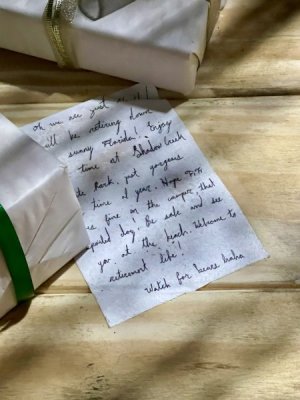 oh we are just
will be retiring down
sunny Florida! Enjoy
time at Shadow Creek
Park, just gorgeous
time of year. Hope
time on the camper that
day. Be safe and see
at the beach. Welcome to
retirement life!
Watch for bears haha